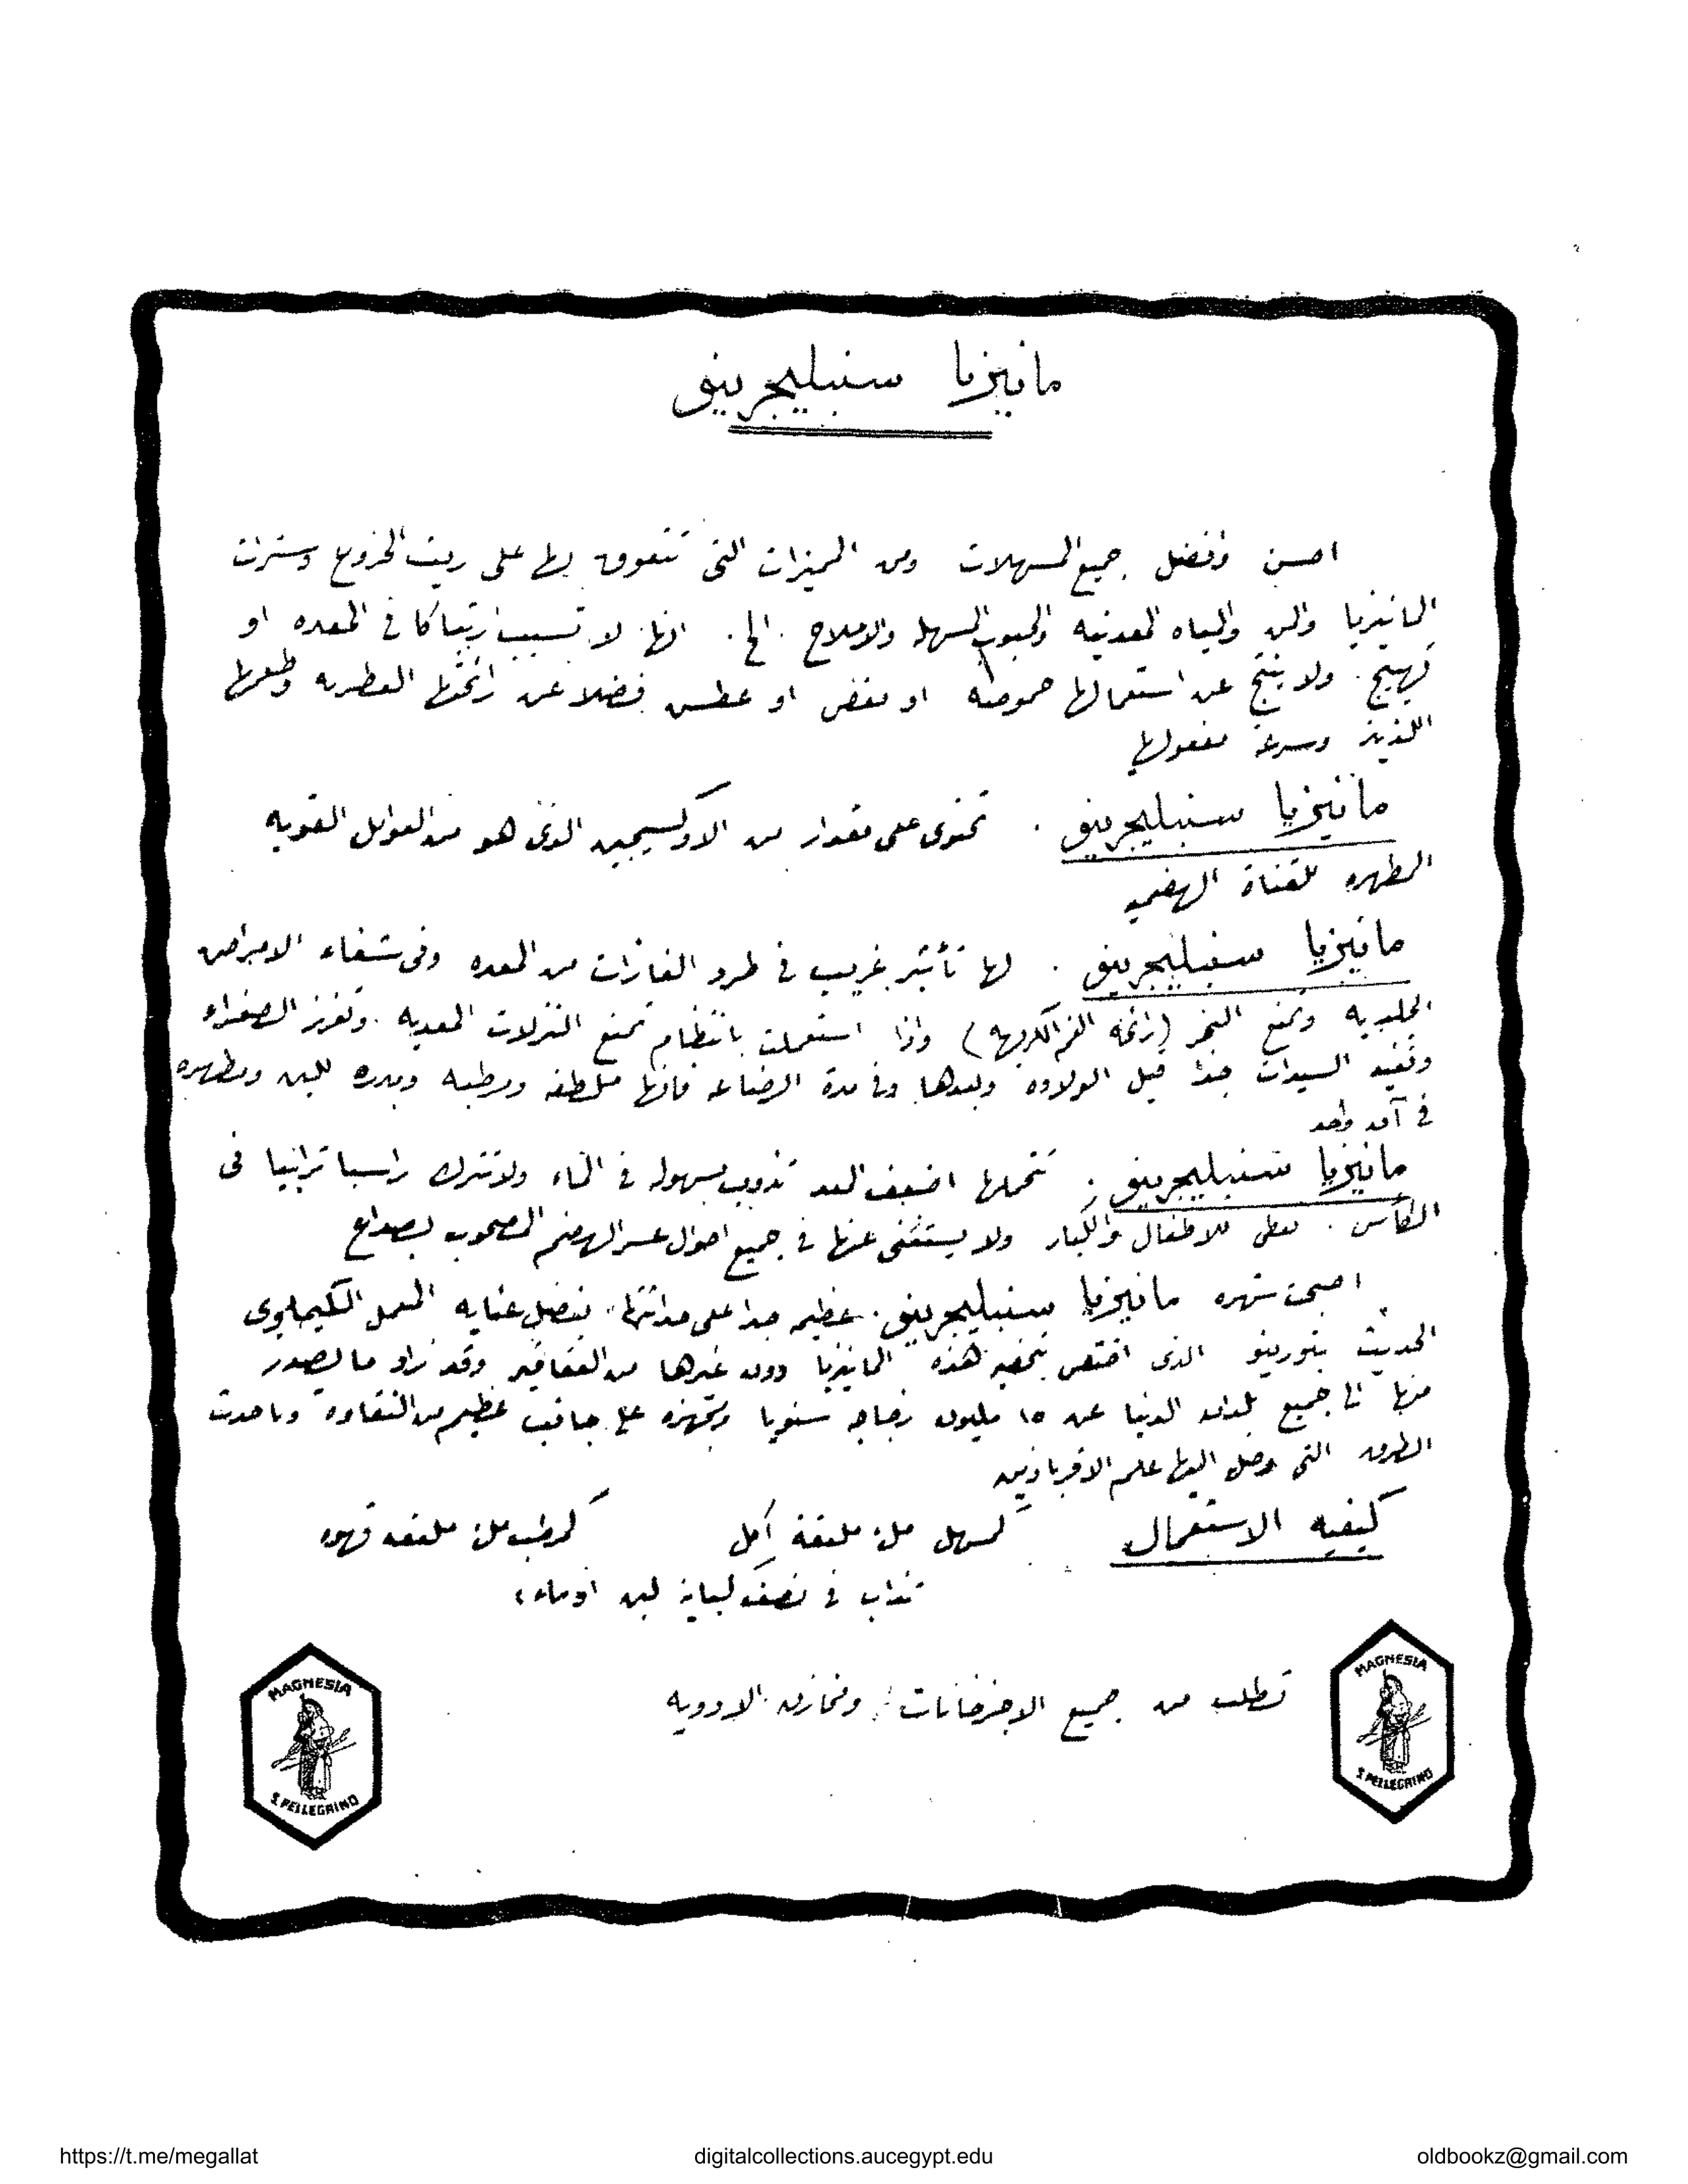 مانيزيا سنبليجرينو
احسن وافضل جميع المسهلات ومن المميزات التى تتفوق بها على زيت الخروع وسترات
المانيزيا والمن والمياه المعدنيه والحبوب المسهله والاملاح الخ. انها لا تسبب ارتباكا فى المعده او
تهيج. ولا ينتج عن استعمالها حموضه او مغص او عطش فضلا عن رائحتها العطريه وطعمها
اللذيذ وسرعة مفعولها
مانيزيا سنبليجرينو. تحتوى على مقدار من الاوكسيجين الذى هو من العوامل القويه
المطهره للقناة الهضميه
مانيزيا سنبليجرينو. لها تأثير غريب فى طرد الغازات من المعده وفى شفاء الامراض
الجلديه وتمنع البخر (رائحة الفم الكريهه) واذا استعملت بانتظام تمنع النزلات المعديه. وتفرز الصفراء
وتفيد السيدات جدا قبل الولاده وبعدها وفى مدة الرضاعه فانها ملطفه ومرطبه ومدره للبن ومطهره
فى آن واحد
مانيزيا سنبليجرينو. تتحملها اضعف المعد تذوب بسهوله فى الماء ولا تترك راسبا ترابيا فى
الكأس. تعطى للاطفال والكبار ولا يستغنى عنها فى جميع احوال عسر الهضم المصحوب بصداع
اصبحت شهره مانيزيا سنبليجرينو. عظيمه جدا على حداثتها. بفضل عنايه المعمل الكيماوى
الحديث بتورينو الذى اختص بتحضير هذه المانيزيا دون غيرها من العقاقير وقد زاد ما يصدر
منها الى جميع بلدان الدنيا عن ١٥ مليون زجاجه سنويا ومجهزه على جانب عظيم من النقاوه وباحدث
الطرق التى وصل اليها علم الاقرباذين
كيفيه الاستعمال كمسهل ملئ ملعقة أكل كمرطب ملئ ملعقه قهوه
تذاب فى نصف كباية لبن اوماء
تطلب من جميع الاجزخانات ومخازن الادويه
MAGNESIA
S.PELLEGRINO
MAGNESIA
S.PELLEGRINO
https://t.me/megallat digitalcollections.aucegypt.edu oldbookz@gmail.com